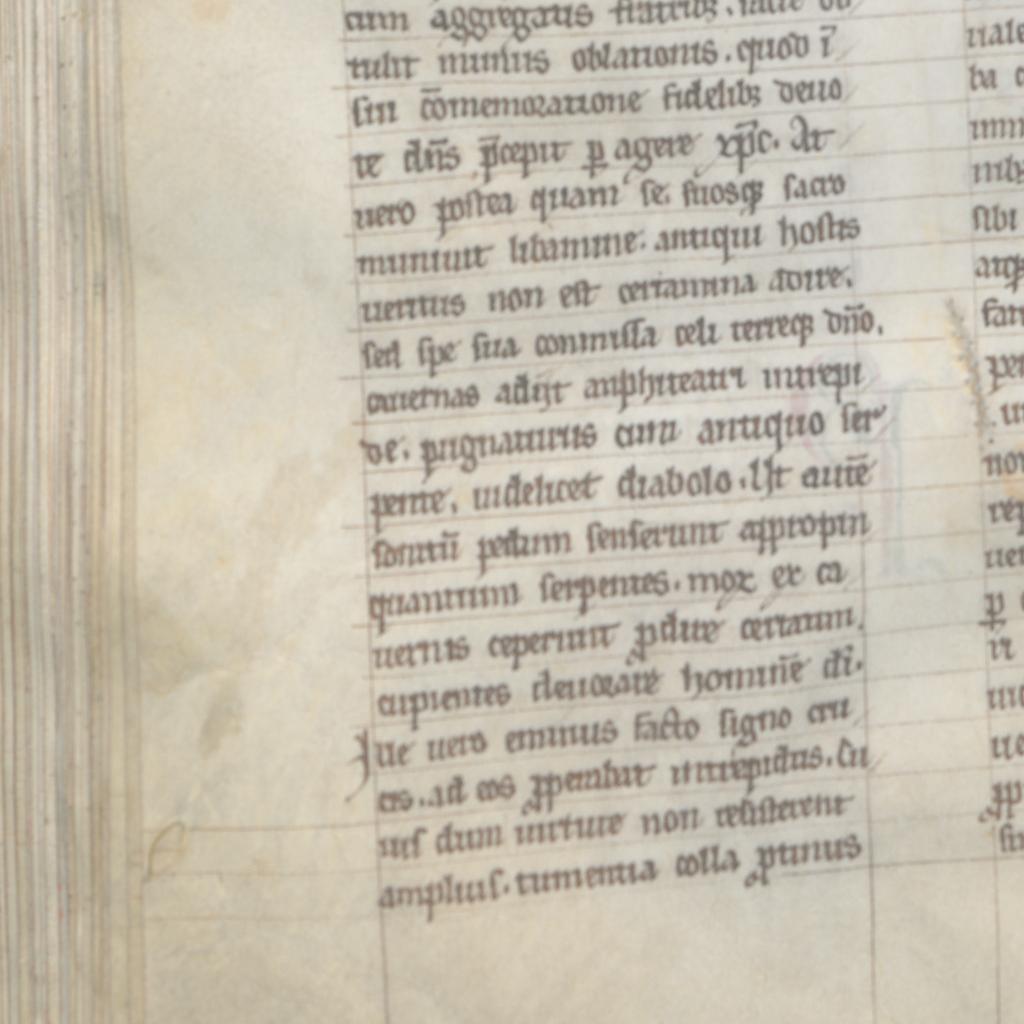 cum aggregatis fratribꝫ. salutē
tulit munus oblationis. quod ī
sui cōmemoratione fidelibꝫ deuo
te dn̄s p̄cepit ꝑ agere xp̄c. At
uero postea quam se. suosqꝫ sacro
muniuit libamine. antiqui hostis
ueritus non est certamina adire.
sed spe sua commissa celi terreqꝫ dn̄o.
cauernas adijt amphyteatri intrepi
de. pugnaturus cum antiquo ser
pente. uidelicet diabolo. Ut autē
sonitū pedum senserunt appropin
quantium serpentes. mox ex ca
uernis ceperunt ꝓdire certatim.
cupientes deuorare hominē dī.
Ille uero eminus facto signo cru
cis. ad eos ꝓperabat intrepidus. Cu
ius dum uirtute non resisterent
amplius. tumentia colla ꝓtinus
uale
ba
sibi
atqꝫ
non
rep
ꝑ